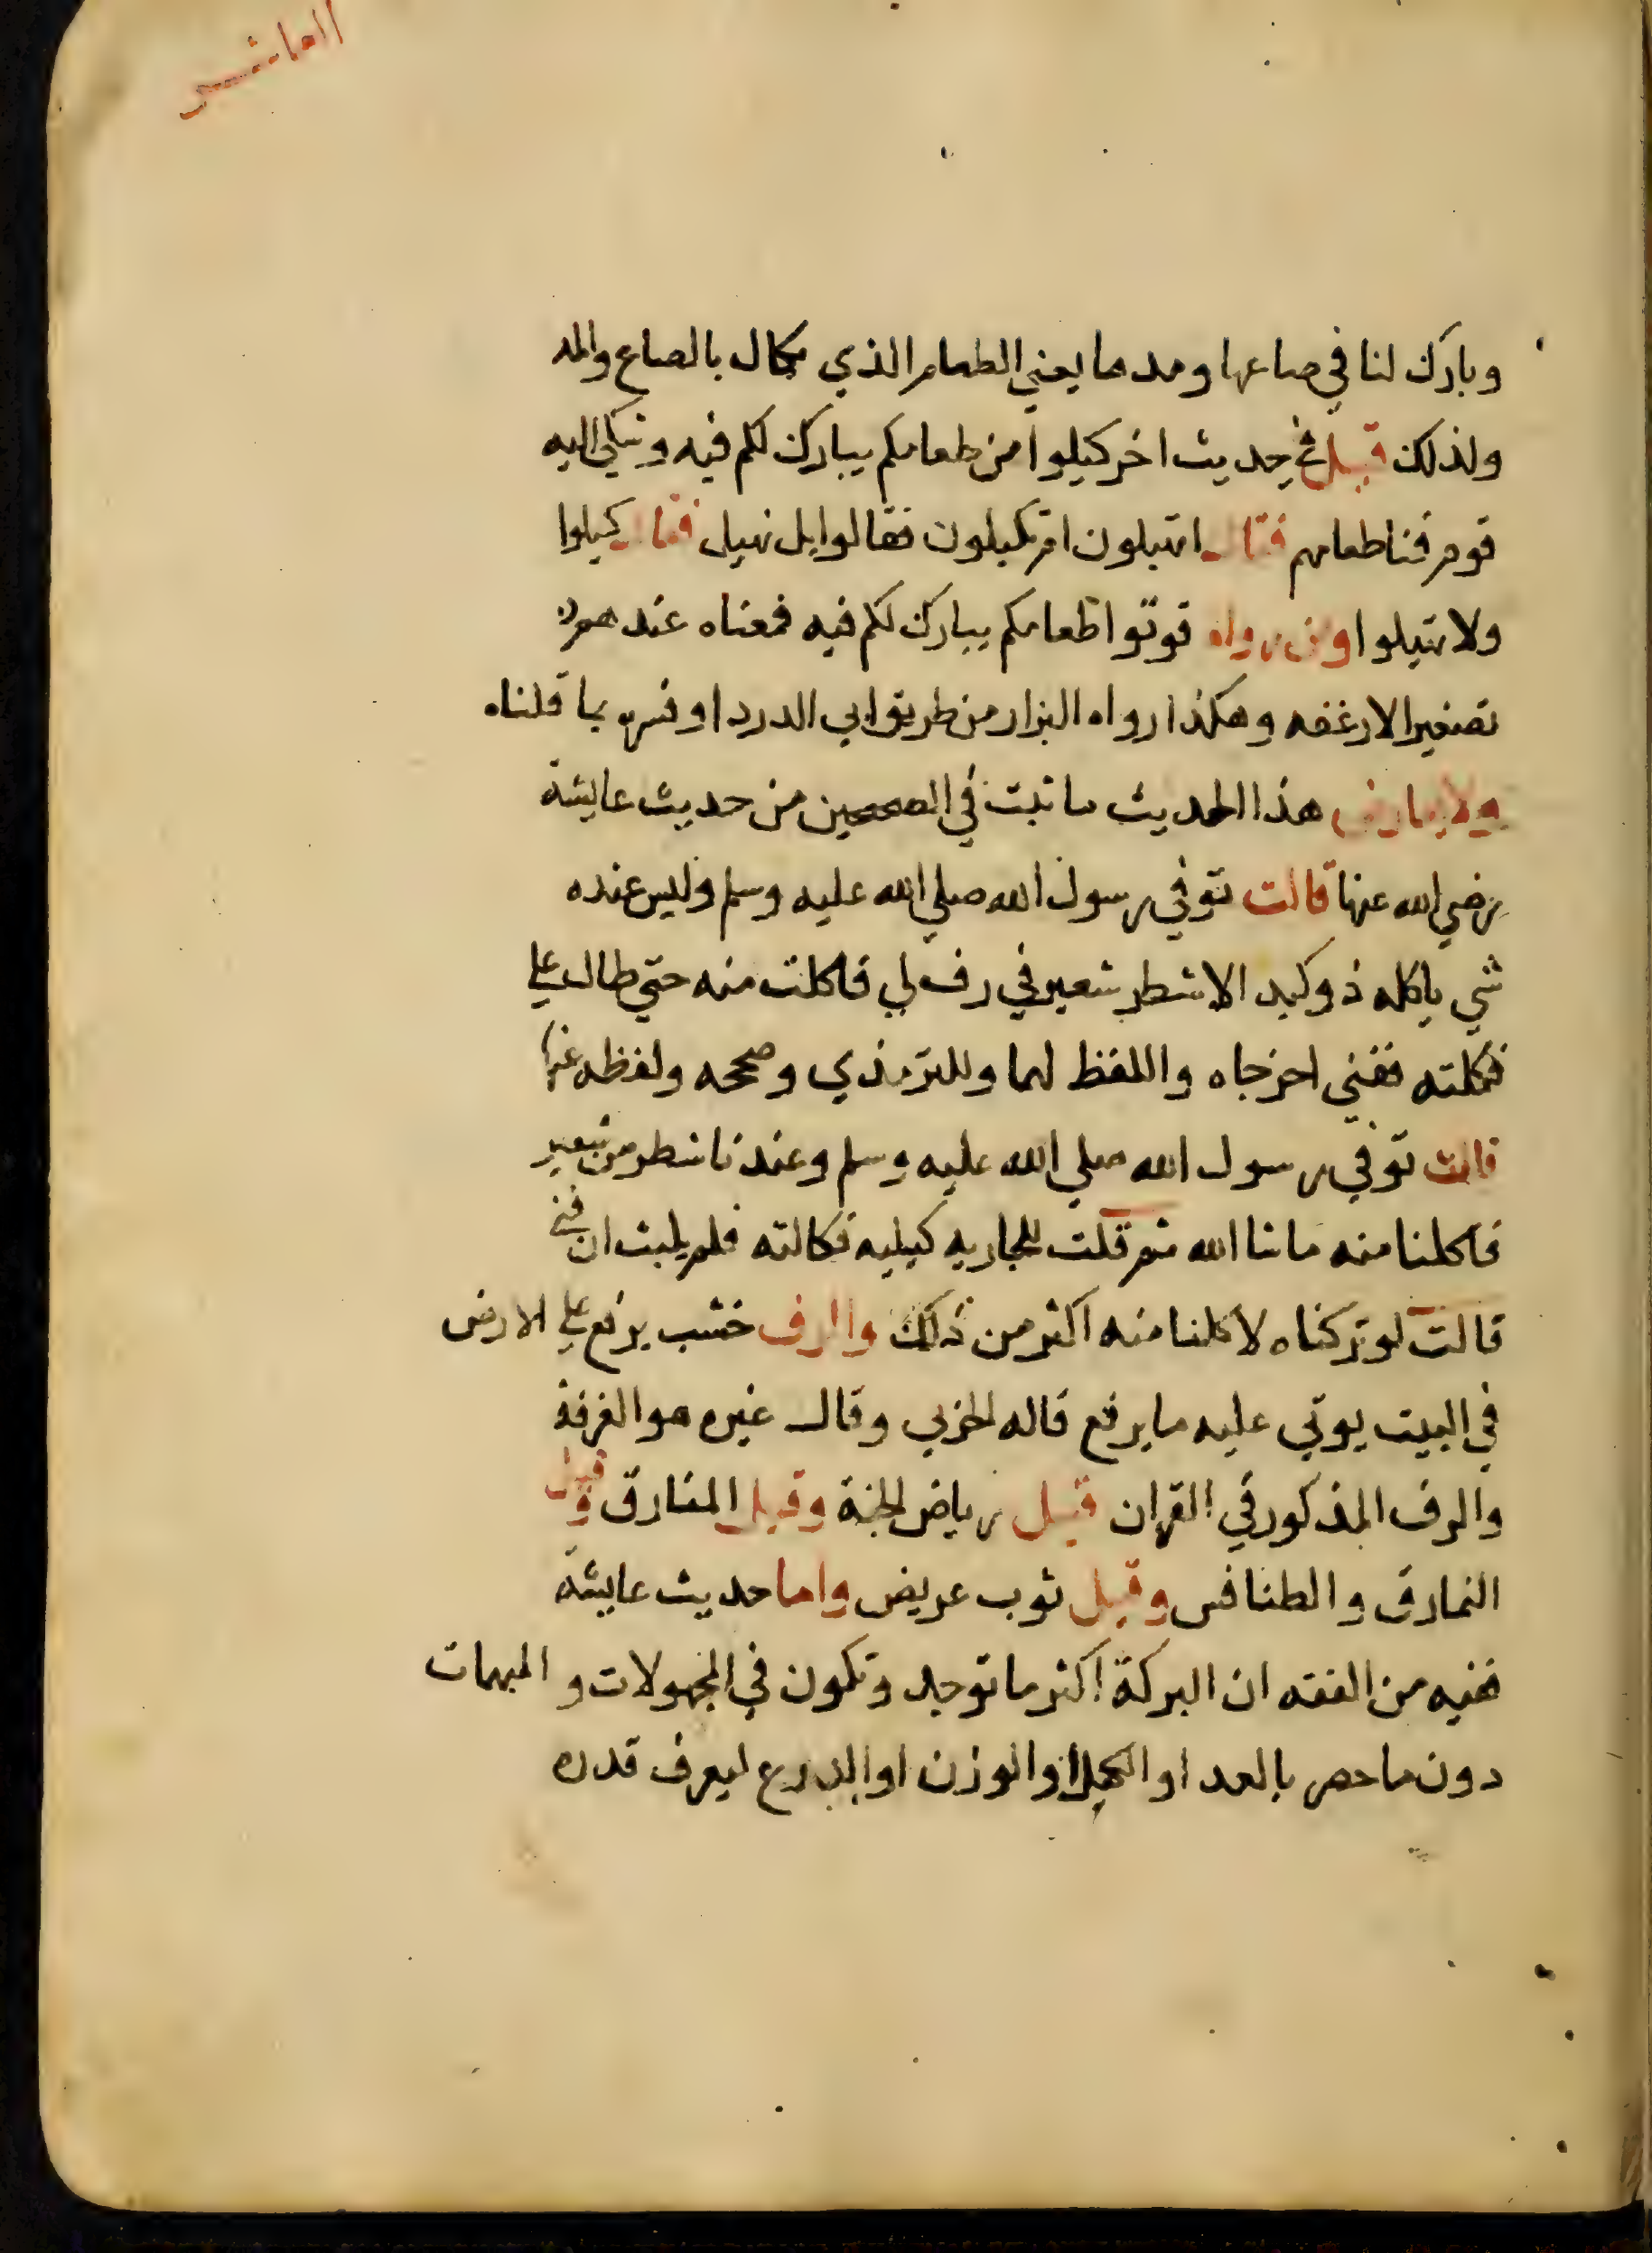 العاشر
وبارك لنا في صاعها ومدها يعني الطعام الذي يكال بالصاع والمد
ولذلك قيل في حديث اخر كيلوا من طعامكم يبارك لكم فيه وشكي اليه
قوم فنا طعامهم فقال اتهيلون ام تكيلون فقالوا بل نهيل فقال كيلوا
ولا تهيلوا ومن رواه قوتوا طعامكم يبارك لكم فيه فمعناه عندهم
تصغير الارغفه وهكذا رواه البزار من طريق ابي الدردا وفسره بما قلناه
ولا يعارض هذا الحديث ما ثبت في الصحيحين من حديث عايشة
رضي الله عنها قالت توفي رسول الله صلي الله عليه وسلم وليس عنده
شي ياكله ذو كبد الا شطر شعير في رف لي فاكلت منه حتي طال علي
فكلته ففني اخرجاه واللفظ لهما وللترمذي وصححه ولفظه عنها
قالت توفي رسول الله صلي الله عليه وسلم وعندنا شطر من شعير
فاكلنا منه ما شا الله ثم قلت للجاريه كيليه فكالته فلم يلبث ان فني
قالت لو تركناه لاكلنا منه اكثر من ذلك والرف خشب يرفع علي الارض
في البيت يوقي عليه ما يرفع قاله الحربي وقال غيره هو الغرفة
والرف المذكور في القران قيل رياض الجنة وقيل المنارق وقيل
النمارق والطنافس وقيل ثوب عريض واما حديث عايشة
ففيه من الفقه ان البركة اكثر ما توجد وتكون في المجهولات و المبهمات
دون ما حصر بالعد او الكيل او الوزن او الدرع ليعرف قدره